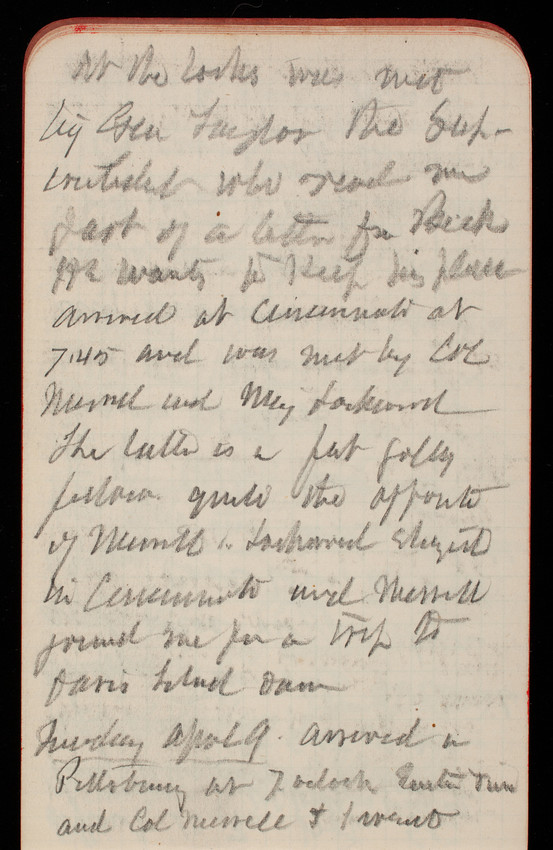 At the locks was met
by Gen Taylor the Sup-
who read me
part of a letter fm Beck
He wants to keep his place
arrived at Cincinnati at
7.45 and was met by Col
Merrill and Maj Lockwood
The latter is a fat jolly
fellow quite the opposite
of Merrill. Lockwood stayed
in Cincinnati and Merrill
joined me for a trip to
Davis Island Dam
Tuesday April 9. arrived in
Pittsburg at 7 oclock Eastern Time
and Col Merrill & I went